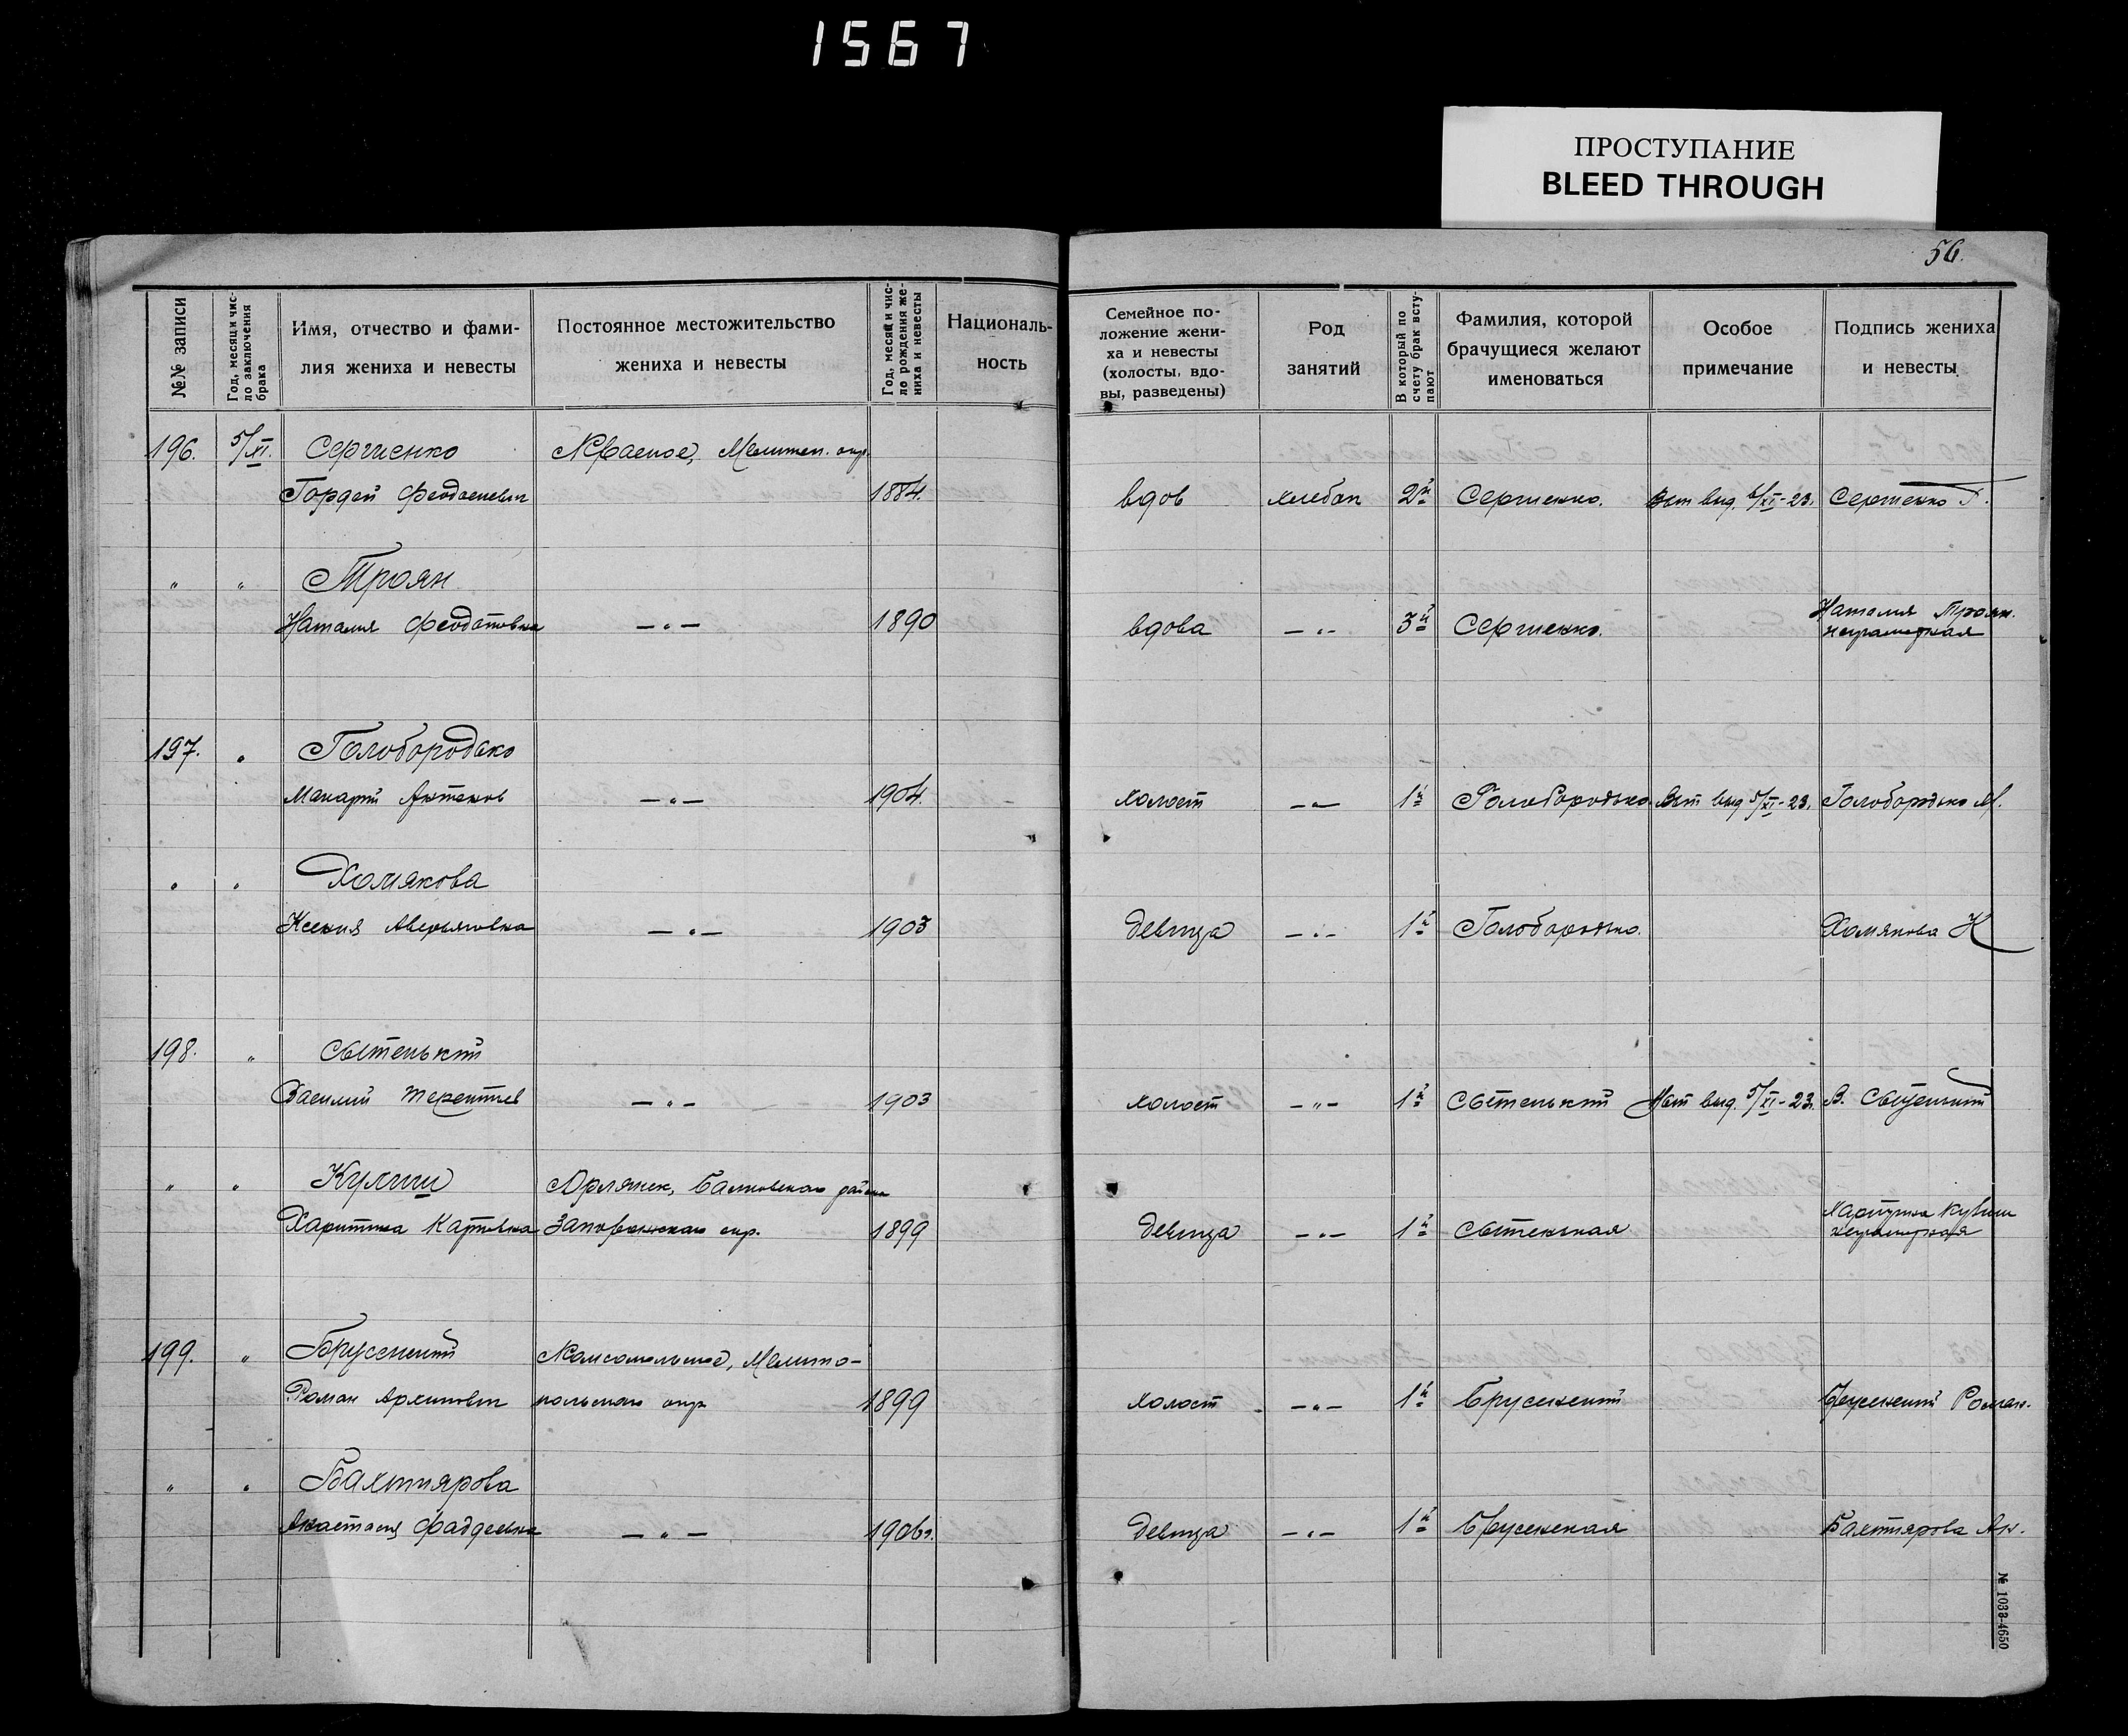 1567
ПРОСТУПАНИЕ
BLEED THROUGH
56.
№№ записи
Год, месяц и чис-
ло заключения
брака
Имя, отчество и фами-
лия жениха и невесты
Постоянное местожительство
жениха и невесты
Год, месяц и чис-
ло рождения же-
ниха и невесты
Националь-
ность
Семейное по-
ложение жени-
ха и невесты
(холосты, вдо-
вы, разведены)
Род
занятий
В который по
счету брак всту-
пают
Фамилия, которой
брачущиеся желают
именоваться
Особое
примечание
Подпись жениха
и невесты
196. 5/XI. Сергиенко
Гордей 1884. вдов хлебоп 2й Сергиенко. выд. 6/XI-23. Сергиенко Г.
" " Троян
Наталия Феодотовна —"— 1890 вдова —"— 3й Сергиенко. Наталия Троян.
неграмотная
197. " Голобородько
Макарий Антонов —"— 1904. холост —"— 1й Голобородько Вып выд 5/XI-23. Голобородько М.
" " Хомякова
Ксения Аверьяновна —"— 1903 девица —"— 1й Голобородько. Хомякова К
198. " Сытенький
Василий Терентиев —"— 1903 холост —"— 1й Сытенький Вып выд. 5/XI-23. В. Сытенький
" " Кулиш Орлянск, Балковского района
Харитина Карповна Запорожского окр. 1899 девица —"— 1й Сытенькая Харитина Кулиш
неграмотная
199. " Брусненкий
Роман Архипович польского окр 1899 холост —"— 1й Роман.
" " Бахтиярова
Анастасия Фаддеевна —"— 1906г. девица —"— 1й Бахтиярова Ан.
№ 1033-4650